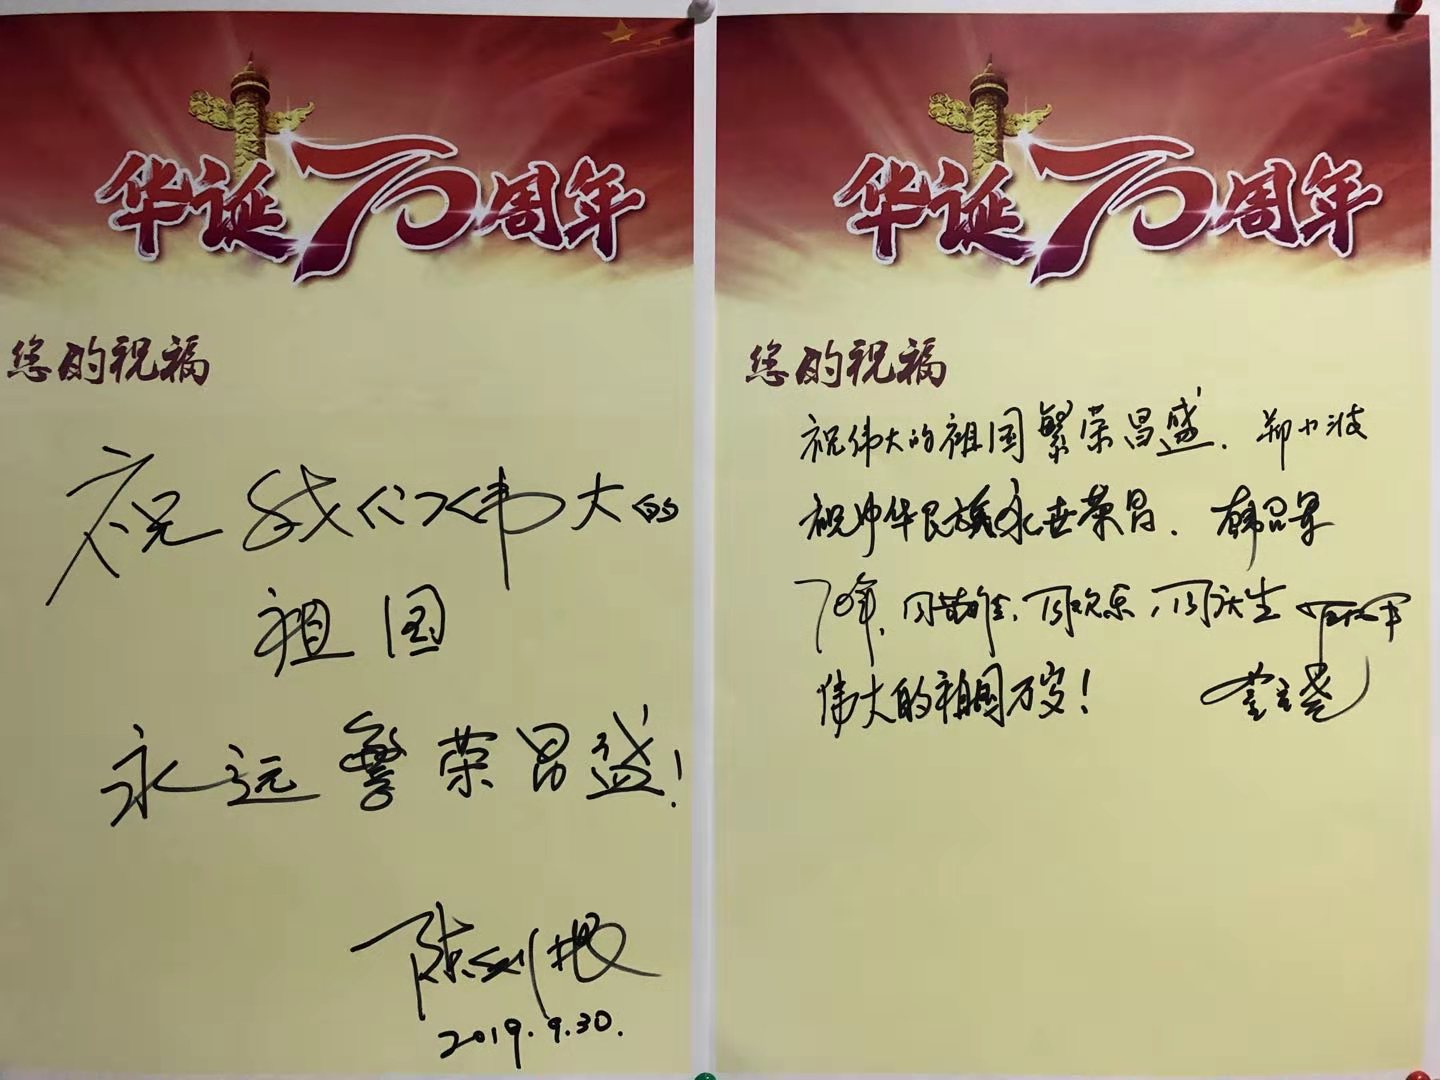 华诞70周年
您的祝福
祝我们伟大的
祖国
永远繁荣昌盛!
陈剑
2019.9.30.
华诞70周年
您的祝福
祝伟大的祖国繁荣昌盛. 郑小波
祝中华民族永世荣昌.
70年, 同欢乐, 同庆生
伟大的祖国万岁!